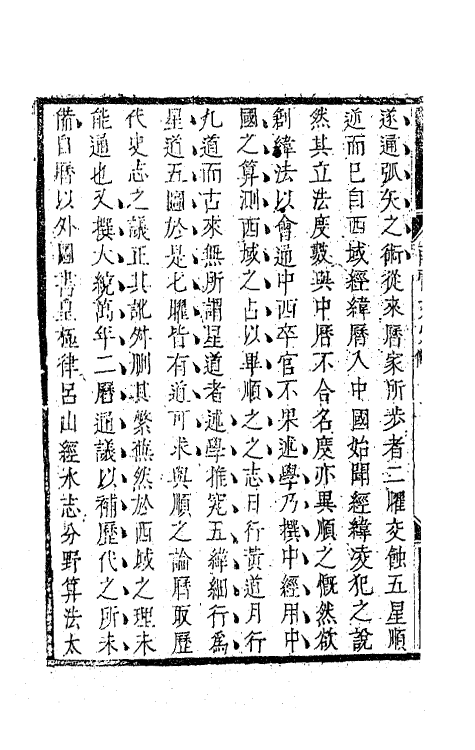 遂通弧矢之術從來曆家所步者二曜交蝕五星順
逆而已自西域經緯曆入中國始聞經緯凌犯之說
然其立法度數與中曆不合名度亦異順之慨然欲
創緯法以會通中西卒官不果述學乃撰中經用中
國之算測西域之占以畢順之之志日行黃道月行
九道而古來無所謂星道者述學推究五緯細行為
星道五圖於是七曜皆有道可求與順之論曆取歷
代史志之議正其訛舛刪其繁蕪然於西域之理未
能通也又撰大統萬年二曆通議以補歷代之所未
備自曆以外圖書皇極律呂山經水志分野算法太